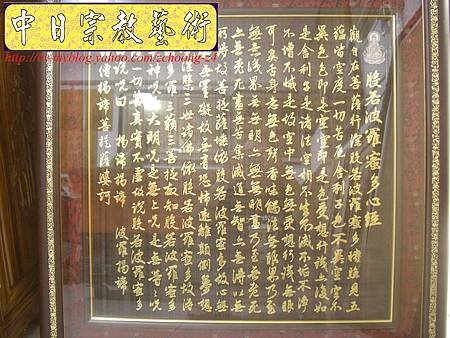 中日宗教藝術
http://tw.myblog.yahoo.com/zchoong-z4
般若波羅蜜多心經
觀自在菩薩行深般若波羅蜜多時照見五
蘊皆空度一切苦厄舍利子色不異空空不
異色色即是空空即是色受想行識亦復如
是舍利子是諸法空相不生不滅不垢不淨
不增不減是故空中無色無受想行識無眼
耳鼻舌身意無色聲香味觸法無眼界乃至
無意識界無無明亦無無明盡乃至無老死
亦無老死盡無苦集滅道無智亦無得以無
所得故菩提薩埵依般若波羅蜜多故心無
無罣礙故無有恐怖遠離顛倒夢想
涅槃三世諸佛依般若波羅蜜多故得
多羅三藐三菩提故知般若波羅蜜多
神咒是大明咒是無上咒是無等等咒
一切苦真實不虛故說般若波羅蜜多
說咒曰 揭諦揭諦 波羅揭諦
僧揭諦菩提薩婆訶